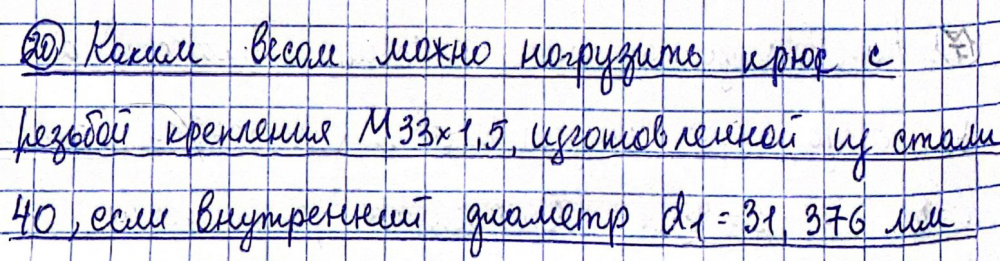 20) Каким весом можно нагрузить крюк с
резьбой крепления М33×1,5, изготовленной из стали
40, если внутренний диаметр d1 = 31,376 мм